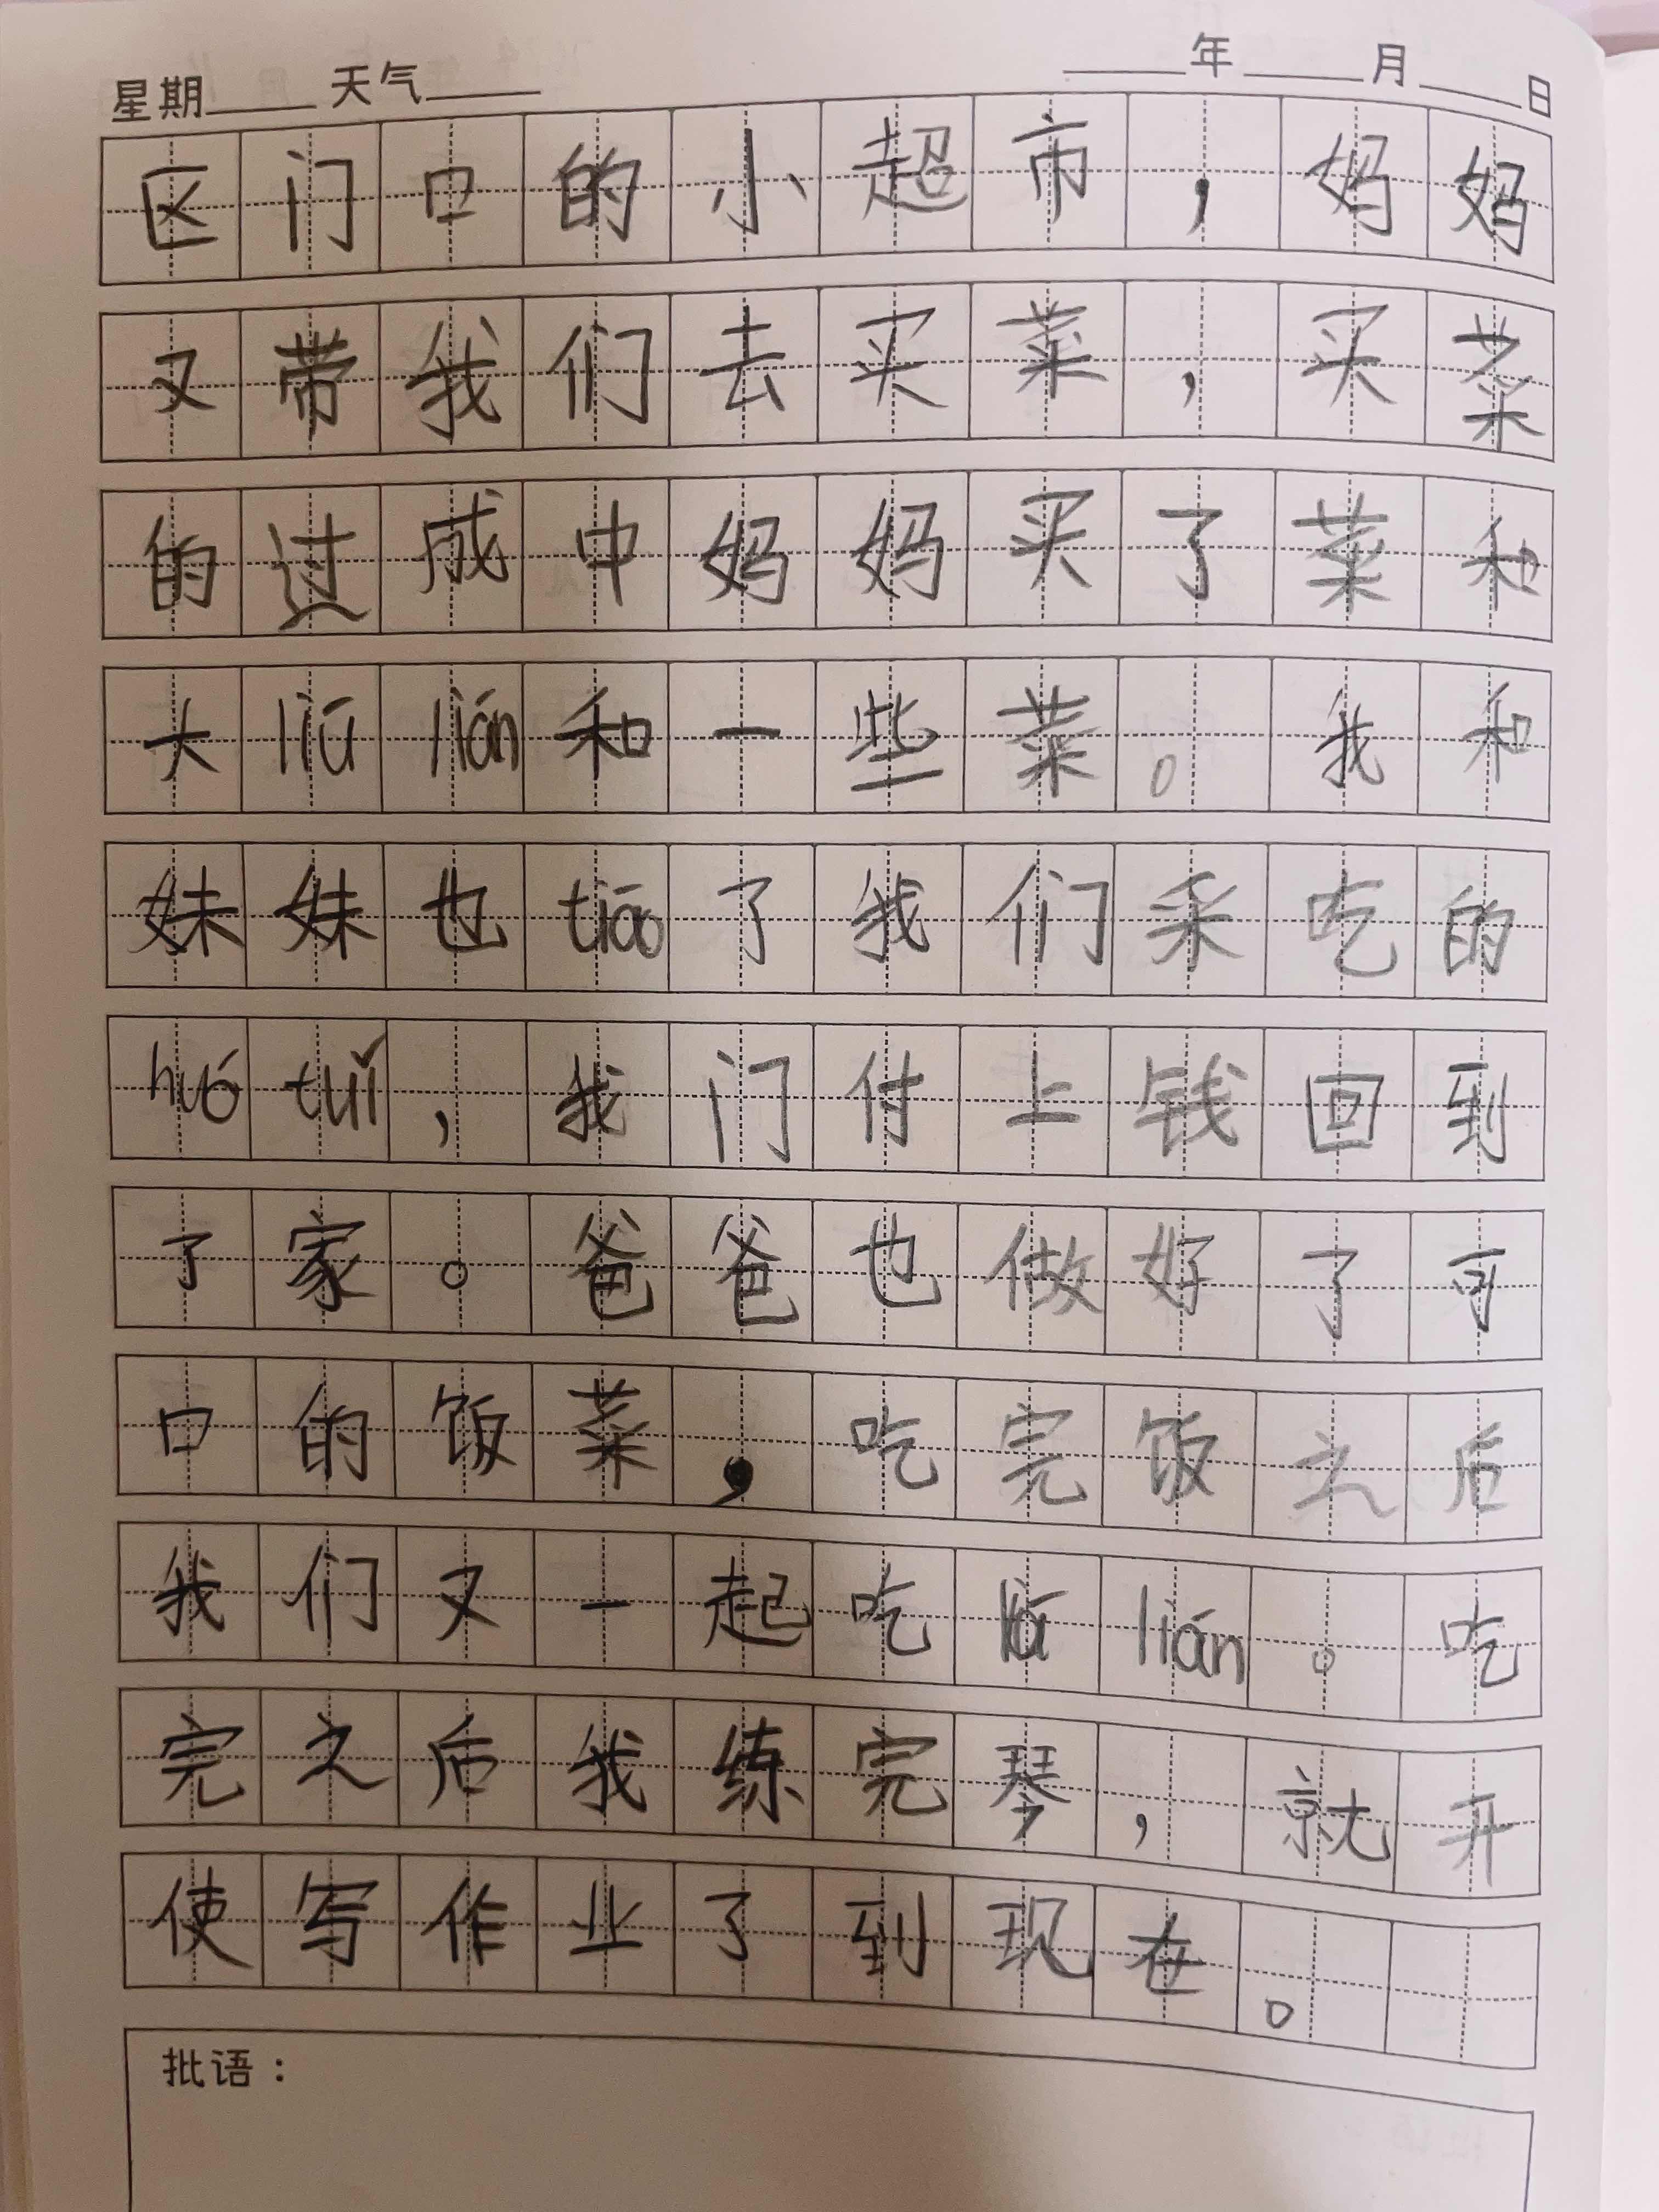 星期____ 天气____ ____年____月____日
区门口的小超市，妈妈
又带我们去买菜，买菜
的过成中妈妈买了菜和
大liū lián和一些菜。我和
妹妹也tiāo了我们采吃的
huó tuǐ，我门付上钱回到
了家。爸爸也做好了可
口的饭菜，吃完饭之后
我们又一起吃 lián。吃
完之后我练完琴，就开
使写作业了到现在。
批语：